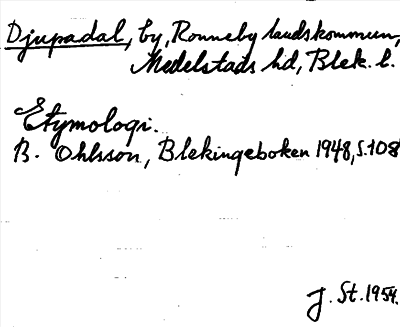 Djupadal, by, Ronneby landskommun,
Medelstads hd, Blek. l.
Etymologi.
B. Ohlsson, Blekingeboken 1948, s. 108
J. St. 1954.